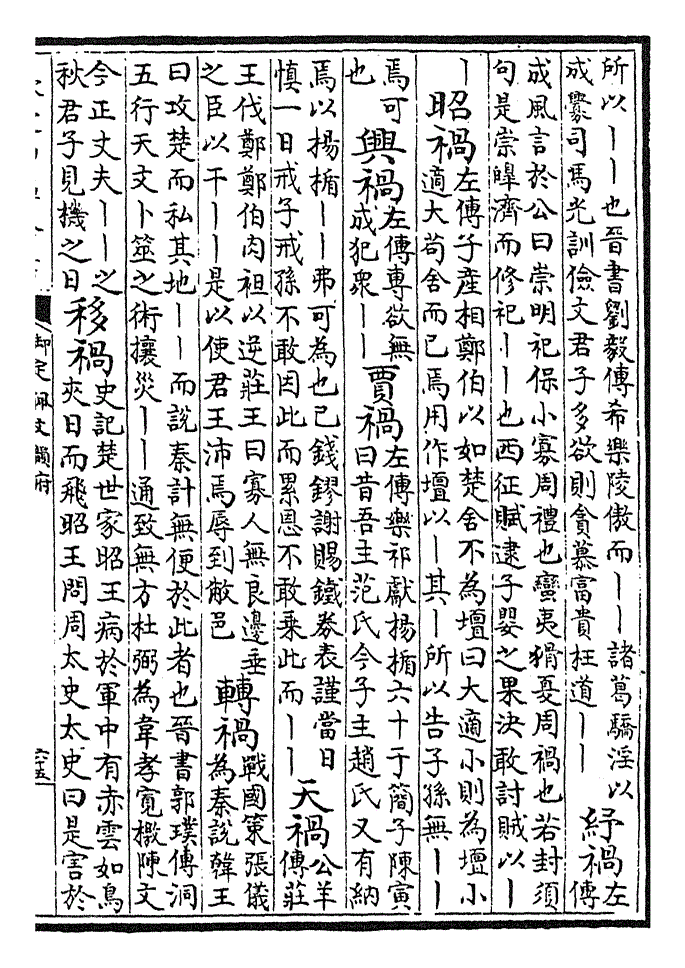 所以丨丨也晉書劉毅傳希樂陵傲而丨丨諸葛驕淫以
成釁司馬光訓儉文君子多欲則貪慕富貴枉道丨丨
紓禍
左
傳
成風言於公曰崇明祀保小寡周禮也蠻夷猾夏周禍也若封須
句是崇皥濟而修祀丨丨也西征賦逮子嬰之果決敢討賊以丨
丨
昭禍
左傳子產相鄭伯以如楚舍不為壇曰大適小則為壇小
適大苟舍而已焉用作壇以丨其丨所以告子孫無丨丨
焉可
也
興禍
左傳專欲無
成犯衆丨丨
賈禍
左傳樂祁獻揚楯六十于簡子陳寅
曰昔吾主范氏今子主趙氏又有納
焉以揚楯丨丨弗可為也已錢鏐謝賜鐵券表謹當日
慎一日戒子戒孫不敢因此而累恩不敢乘此而丨丨
天禍
公羊
傳莊
王伐鄭鄭伯肉袒以逆莊王曰寡人無良邊垂
之臣以干丨丨是以使君王沛焉辱到敝邑
轉禍
戰國策張儀
為秦說韓王
曰攻楚而私其地丨丨而說秦計無便於此者也晉書郭璞傳洞
五行天文卜筮之術攘災丨丨通致無方杜弼為韋孝寬檄陳文
今正丈夫丨丨之
秋君子見機之日
移禍
史記楚世家昭王病於軍中有赤雲如鳥
夾日而飛昭王問周太史太史曰是害於
御定佩文韻府
六五